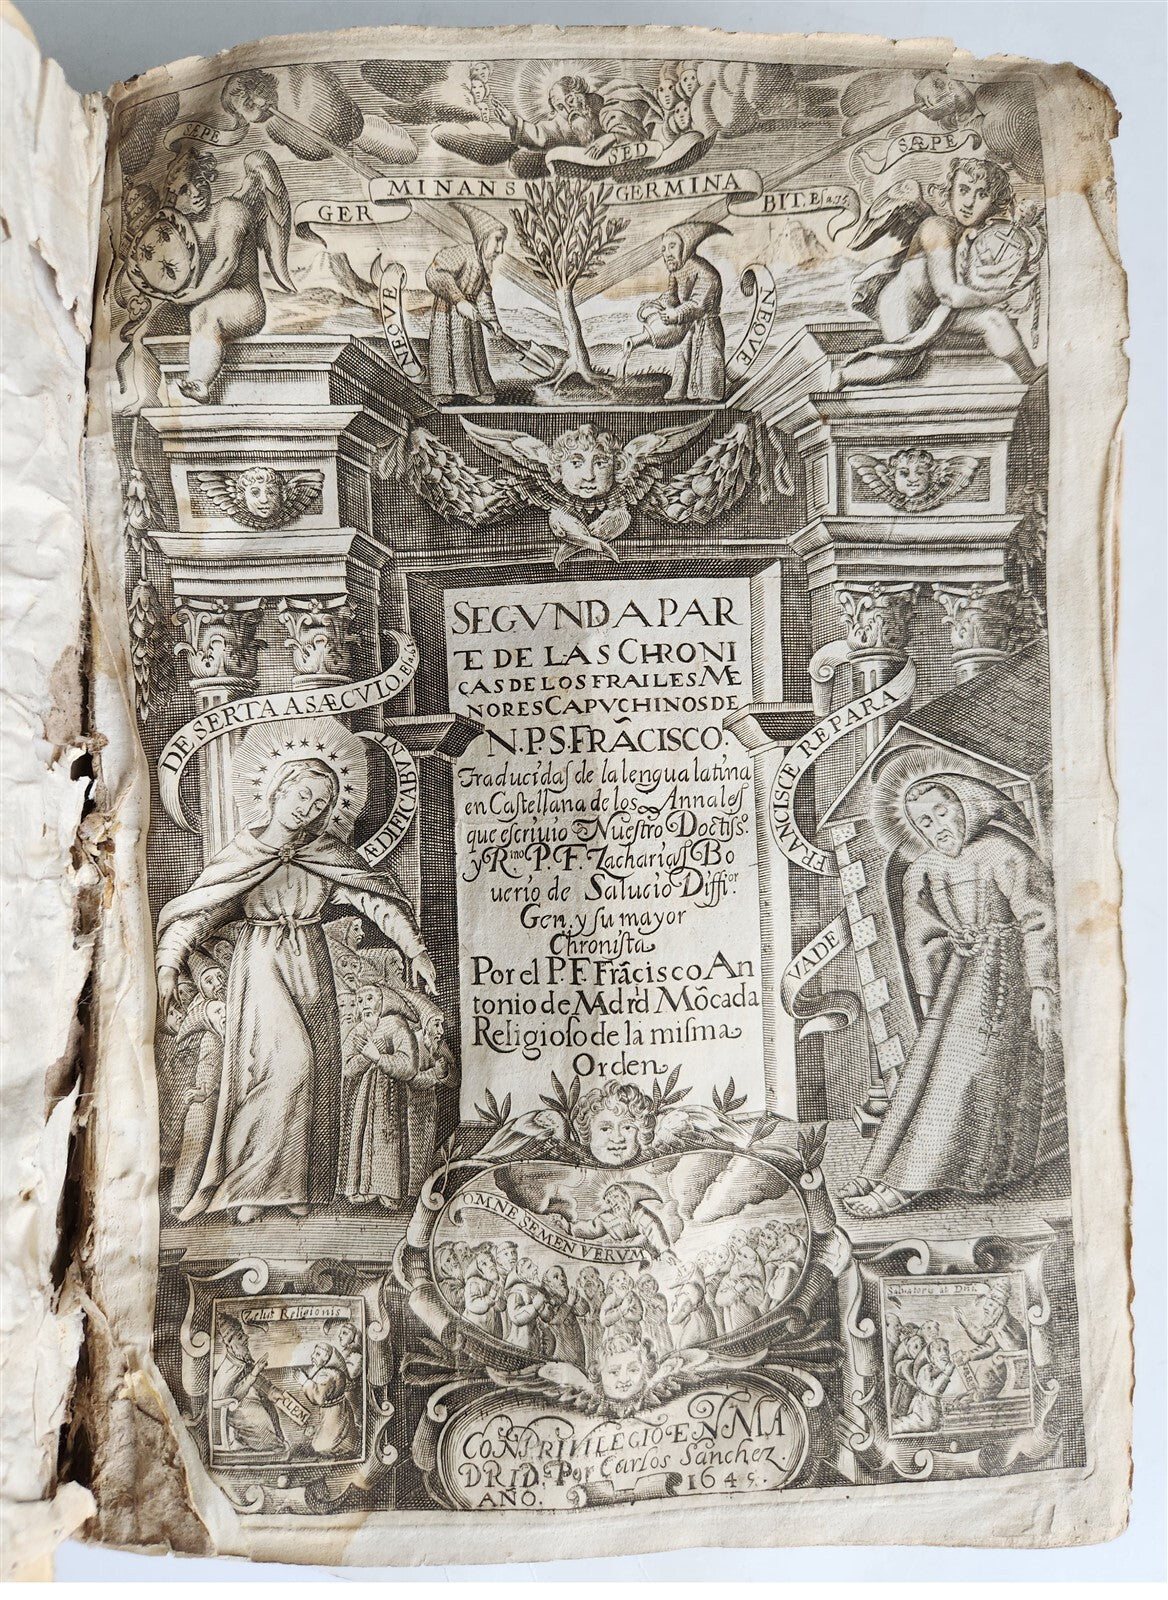 SÆPE
SED
SÆPE
MINANS
GERMINA
GER
BIT. Esa.
NEQVE
NEQVE
SEGVNDA PAR
TE DE LAS CHRONI
CAS DE LOS FRAILES ME
NORES CAPVCHINOS DE
N.P.S. FRÃCISCO.
Traducidas de la lengua latina
en Castellana de los Annales
que escriuio Nuestro Doctisso.
y Rmo. P. F. Zacharias Bo
uerio de Salucio Diffior.
Gen. y su mayor
Chronista
Por el P. F. Frãcisco An
tonio de Madrd Mõcada
Religioso de la misma
Orden
DESERTA A SÆCVLO. Esa.
IN
ÆDIFICABVN
FRANCISCE REPARA
VADE
OMNE SEMEN VERVM
Zelus Religionis
CLEM
Saluatoris
CON PRIVILEGIO EN MA
DRID. Por Carlos Sanchez.
AÑO. 1645.